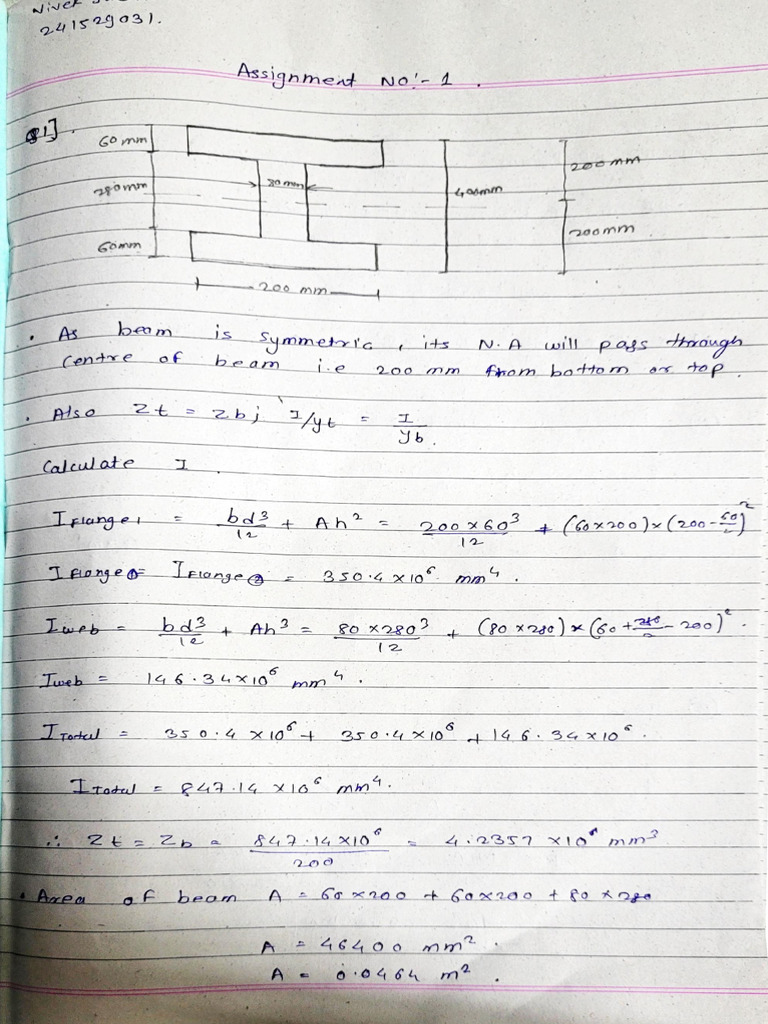 241529031.
Assignment No:- 1.
Q1].
60mm
200mm
280mm
80mm
400mm
60mm
200mm
200 mm
• As beam is symmetric, its N.A will pass through
centre of beam i.e 200 mm from bottom or top.
• Also Zt = Zb; I/yt = I/yb.
Calculate I.
I Flange1 = bd³/12 + Ah² = 200×60³/12 + (60×200)×(200-60/2)²
I Flange① = I Flange② = 350.4×10⁶ mm⁴.
Iweb = bd³/12 + Ah³ = 80×280³/12 + (80×280)×(60+280/2-200)².
Iweb = 146.34×10⁶ mm⁴.
I Total = 350.4×10⁶ + 350.4×10⁶ + 146.34×10⁶.
I Total = 847.14×10⁶ mm⁴.
∴ Zt = Zb = 847.14×10⁶/200 = 4.2357×10⁶ mm³
• Area of beam A = 60×200 + 60×200 + 80×280
A = 46400 mm².
A = 0.0464 m².